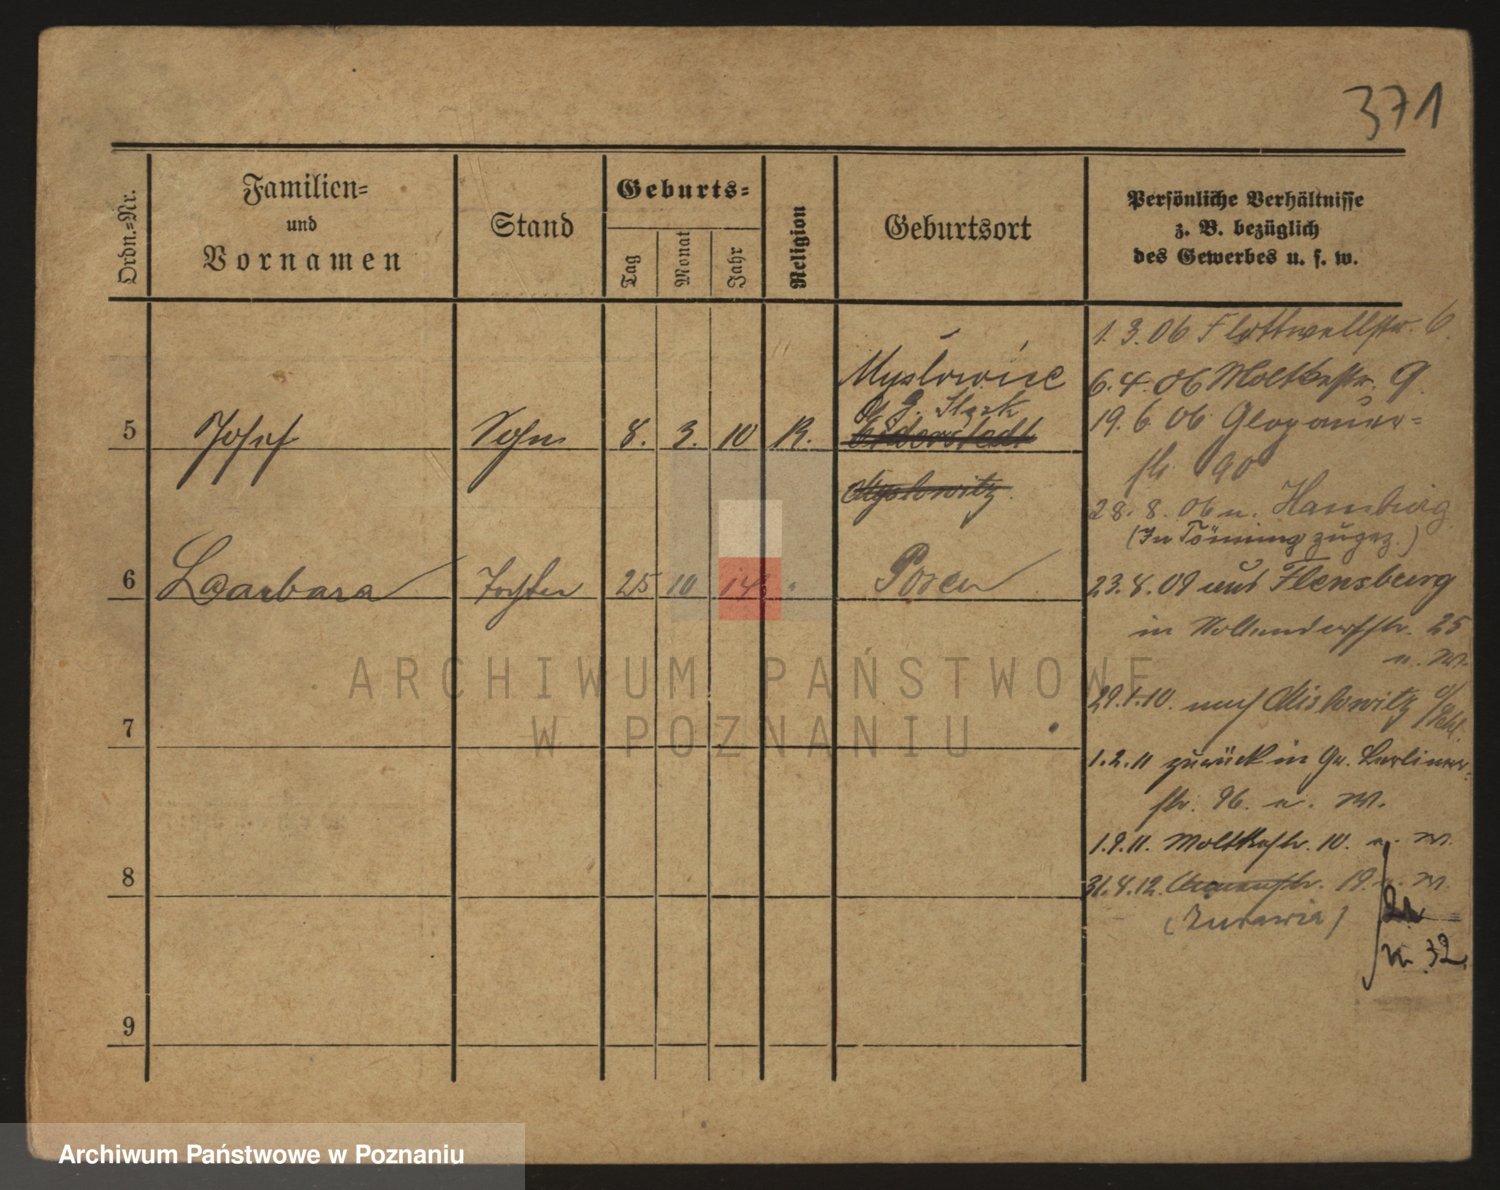 371
Ordn.-Nr.
Familien-
und
Vornamen
Stand
Geburts-
Tag
Monat
Jahr
Religion
Geburtsort
Persönliche Verhältnisse
z. B. bezüglich
des Gewerbes u. s. w.
1.3.06 Flottwellstr. 6.
Mysłowice
6.4.06 Moltkestr. 9
G. Śląsk
19.6.06 Glogauer-
5 Josef Sohn 8. 3. 10 K. Eiderstedt
str. 90
Myslowitz
28.8.06 n. Hamburg
(In Tönning zugez.)
6 Barbara Tochter 25 10 14 " Posen
23.8.09 aus Flensburg
in 25
u. W.
29.1.10. nach Mislowitz
ARCHIWUM PAŃSTWOWE
W POZNANIU
7
1.2.11 zurück in Gr. Berliner-
str. 96. u. W.
1.9.11. Moltkestr. 10. u. W.
8
31.4.12. 19. u. W.
(Żurawia)
K. 32
9
Archiwum Państwowe w Poznaniu